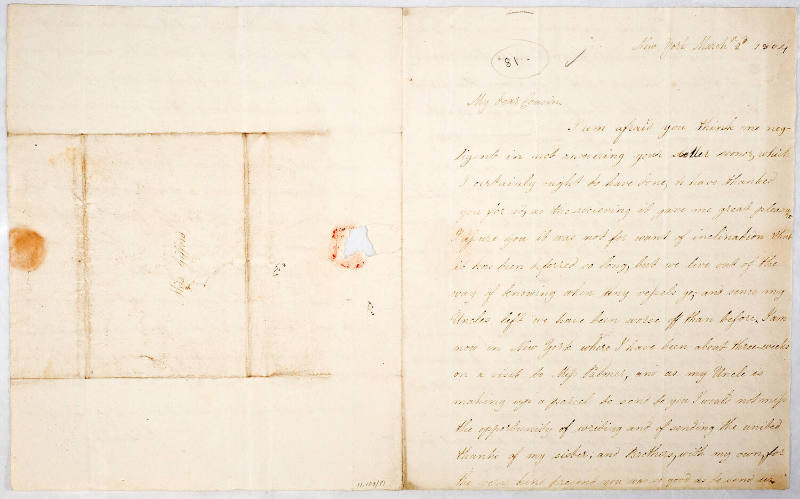 Miss
18
New York March 2d 1804
My dear Cousin
I am afraid you think me neg-
ligent in not answering your letter sooner, which
I certainly ought to have done, & have thanked
you for it, as the receiving it gave me great pleasure
I assure you it was not for want of inclination that
it has been deferred so long, but we live out of the
way of knowing when any vessels go, and since my
Uncles left we have been worse off than before, I am
now in New York where I have been about three weeks
on a visit to Miss Palmer, and as my Uncle is
making up a parcel to send to you I would not miss
the opportunity of writing and of sending the united
thanks of my sister, and Brothers, with my own, for
the very kind present you was so good as to send us